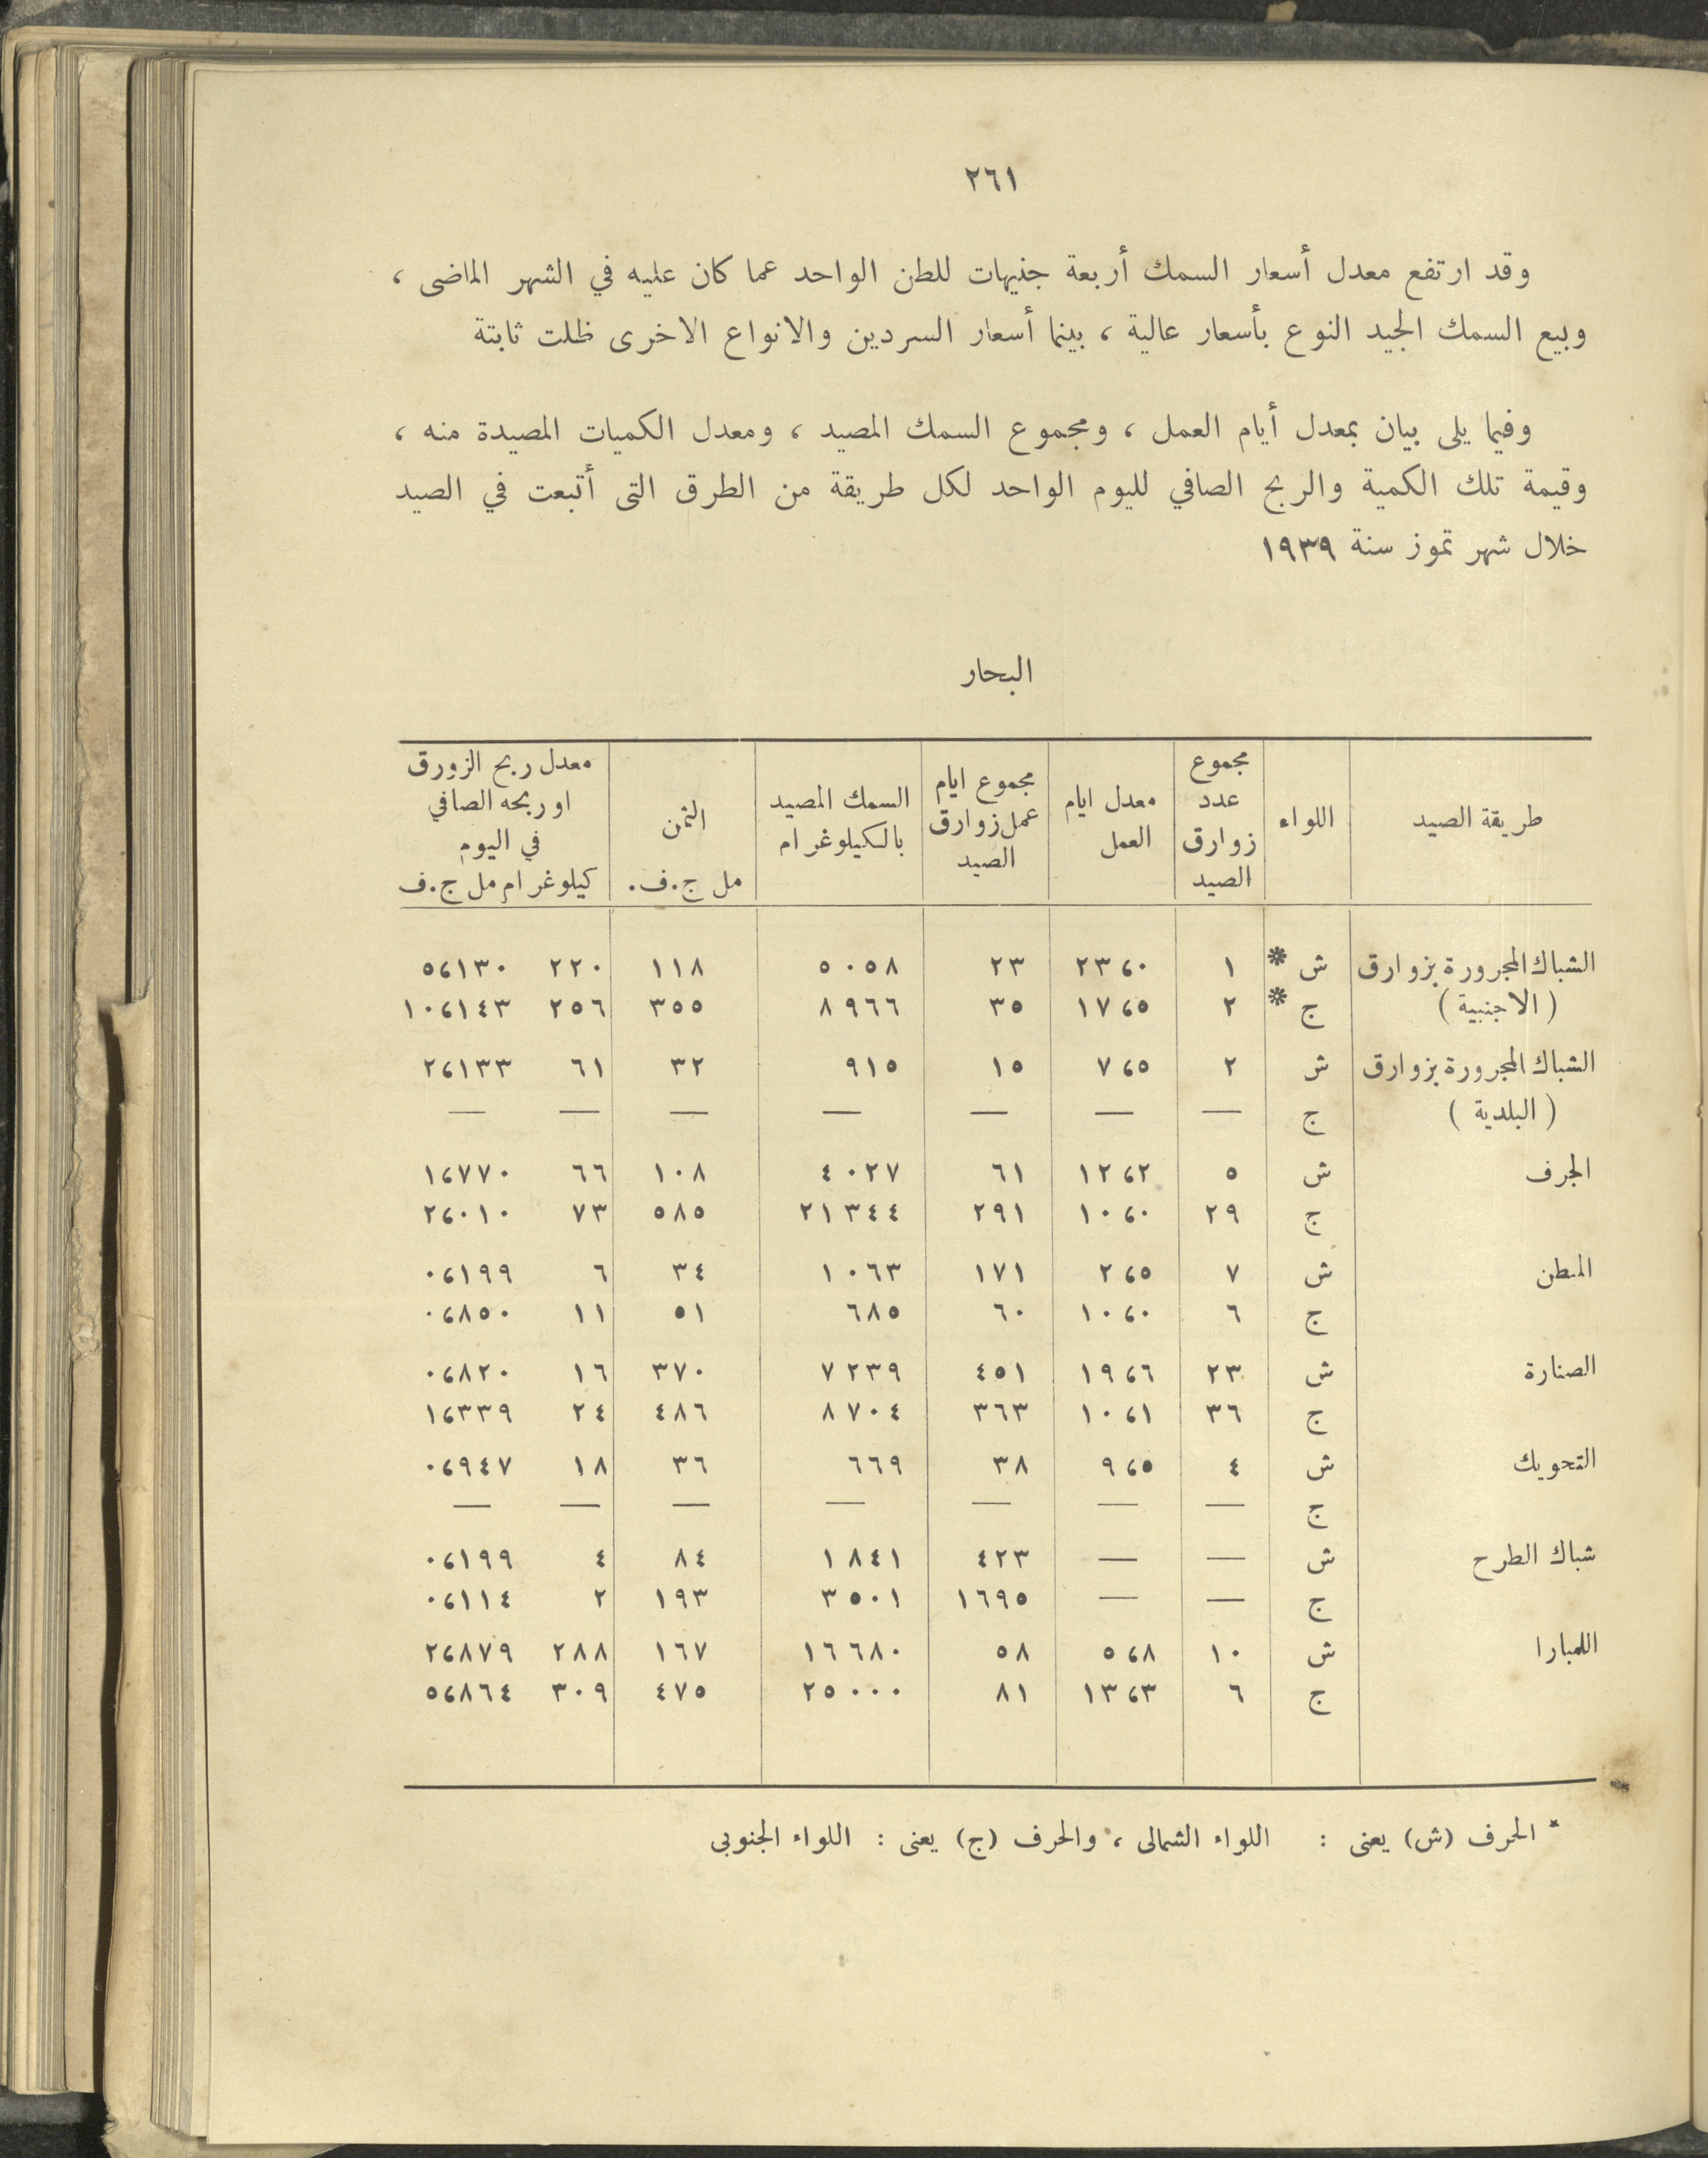 ٢٦١
وقد ارتفع معدل أسعار السمك أربعة جنيهات للطن الواحد عما كان عليه في الشهر الماضى ،
وبيع السمك الجيد النوع بأسعار عالية ، بينما أسعار السردين والانواع الاخرى ظلت ثابتة
وفيما يلى بيان بمعدل أيام العمل ، ومجموع السمك المصيد ، ومعدل الكميات المصيدة منه ،
وقيمة تلك الكمية والربح الصافي لليوم الواحد لكل طريقة من الطرق التى أتبعت في الصيد
خلال شهر تموز سنة ١٩٣٩
البحار
طريقة الصيد | اللواء | مجموع عدد زوارق الصيد | معدل ايام العمل | مجموع ايام عمل زوارق الصيد | السمك المصيد بالكيلوغرام | الثمن مل ج.ف. | معدل ربح الزورق او ربحه الصافي في اليوم كيلوغرام مل ج.ف
الشباك المجرورة بزوارق | ش * | ١ | ٢٣،٠ | ٢٣ | ٥٠٥٨ | ١١٨ | ٢٢٠ | ٥،١٣٠
( الاجنبية ) | ج * | ٢ | ١٧،٥ | ٣٥ | ٨٩٦٦ | ٣٥٥ | ٢٥٦ | ١٠،١٤٣
الشباك المجرورة بزوارق | ش | ٢ | ٧،٥ | ١٥ | ٩١٥ | ٣٢ | ٦١ | ٢،١٣٣
( البلدية ) | ج | — | — | — | — | — | — | —
الجرف | ش | ٥ | ١٢،٢ | ٦١ | ٤٠٢٧ | ١٠٨ | ٦٦ | ١،٧٧٠
ج | ٢٩ | ١٠،٠ | ٢٩١ | ٢١٣٤٤ | ٥٨٥ | ٧٣ | ٢،٠١٠
المطن | ش | ٧ | ٢،٥ | ١٧١ | ١٠٦٣ | ٣٤ | ٦ | ٠،١٩٩
ج | ٦ | ١٠،٠ | ٦٠ | ٦٨٥ | ٥١ | ١١ | ٠،٨٥٠
الصنارة | ش | ٢٣ | ١٩،٦ | ٤٥١ | ٧٢٣٩ | ٣٧٠ | ١٦ | ٠،٨٢٠
ج | ٣٦ | ١٠،١ | ٣٦٣ | ٨٧٠٤ | ٤٨٦ | ٢٤ | ١،٣٣٩
التحويك | ش | ٤ | ٩،٥ | ٣٨ | ٦٦٩ | ٣٦ | ١٨ | ٠،٩٤٧
ج | — | — | — | — | — | — | —
شباك الطرح | ش | — | — | ٤٢٣ | ١٨٤١ | ٨٤ | ٤ | ٠،١٩٩
ج | — | — | ١٦٩٥ | ٣٥٠١ | ١٩٣ | ٢ | ٠،١١٤
اللمبارا | ش | ١٠ | ٥،٨ | ٥٨ | ١٦٦٨٠ | ١٦٧ | ٢٨٨ | ٢،٨٧٩
ج | ٦ | ١٣،٣ | ٨١ | ٢٥٠٠٠ | ٤٧٥ | ٣٠٩ | ٥،٨٦٤
* الحرف (ش) يعنى : اللواء الشمالى ، والحرف (ج) يعنى : اللواء الجنوبى